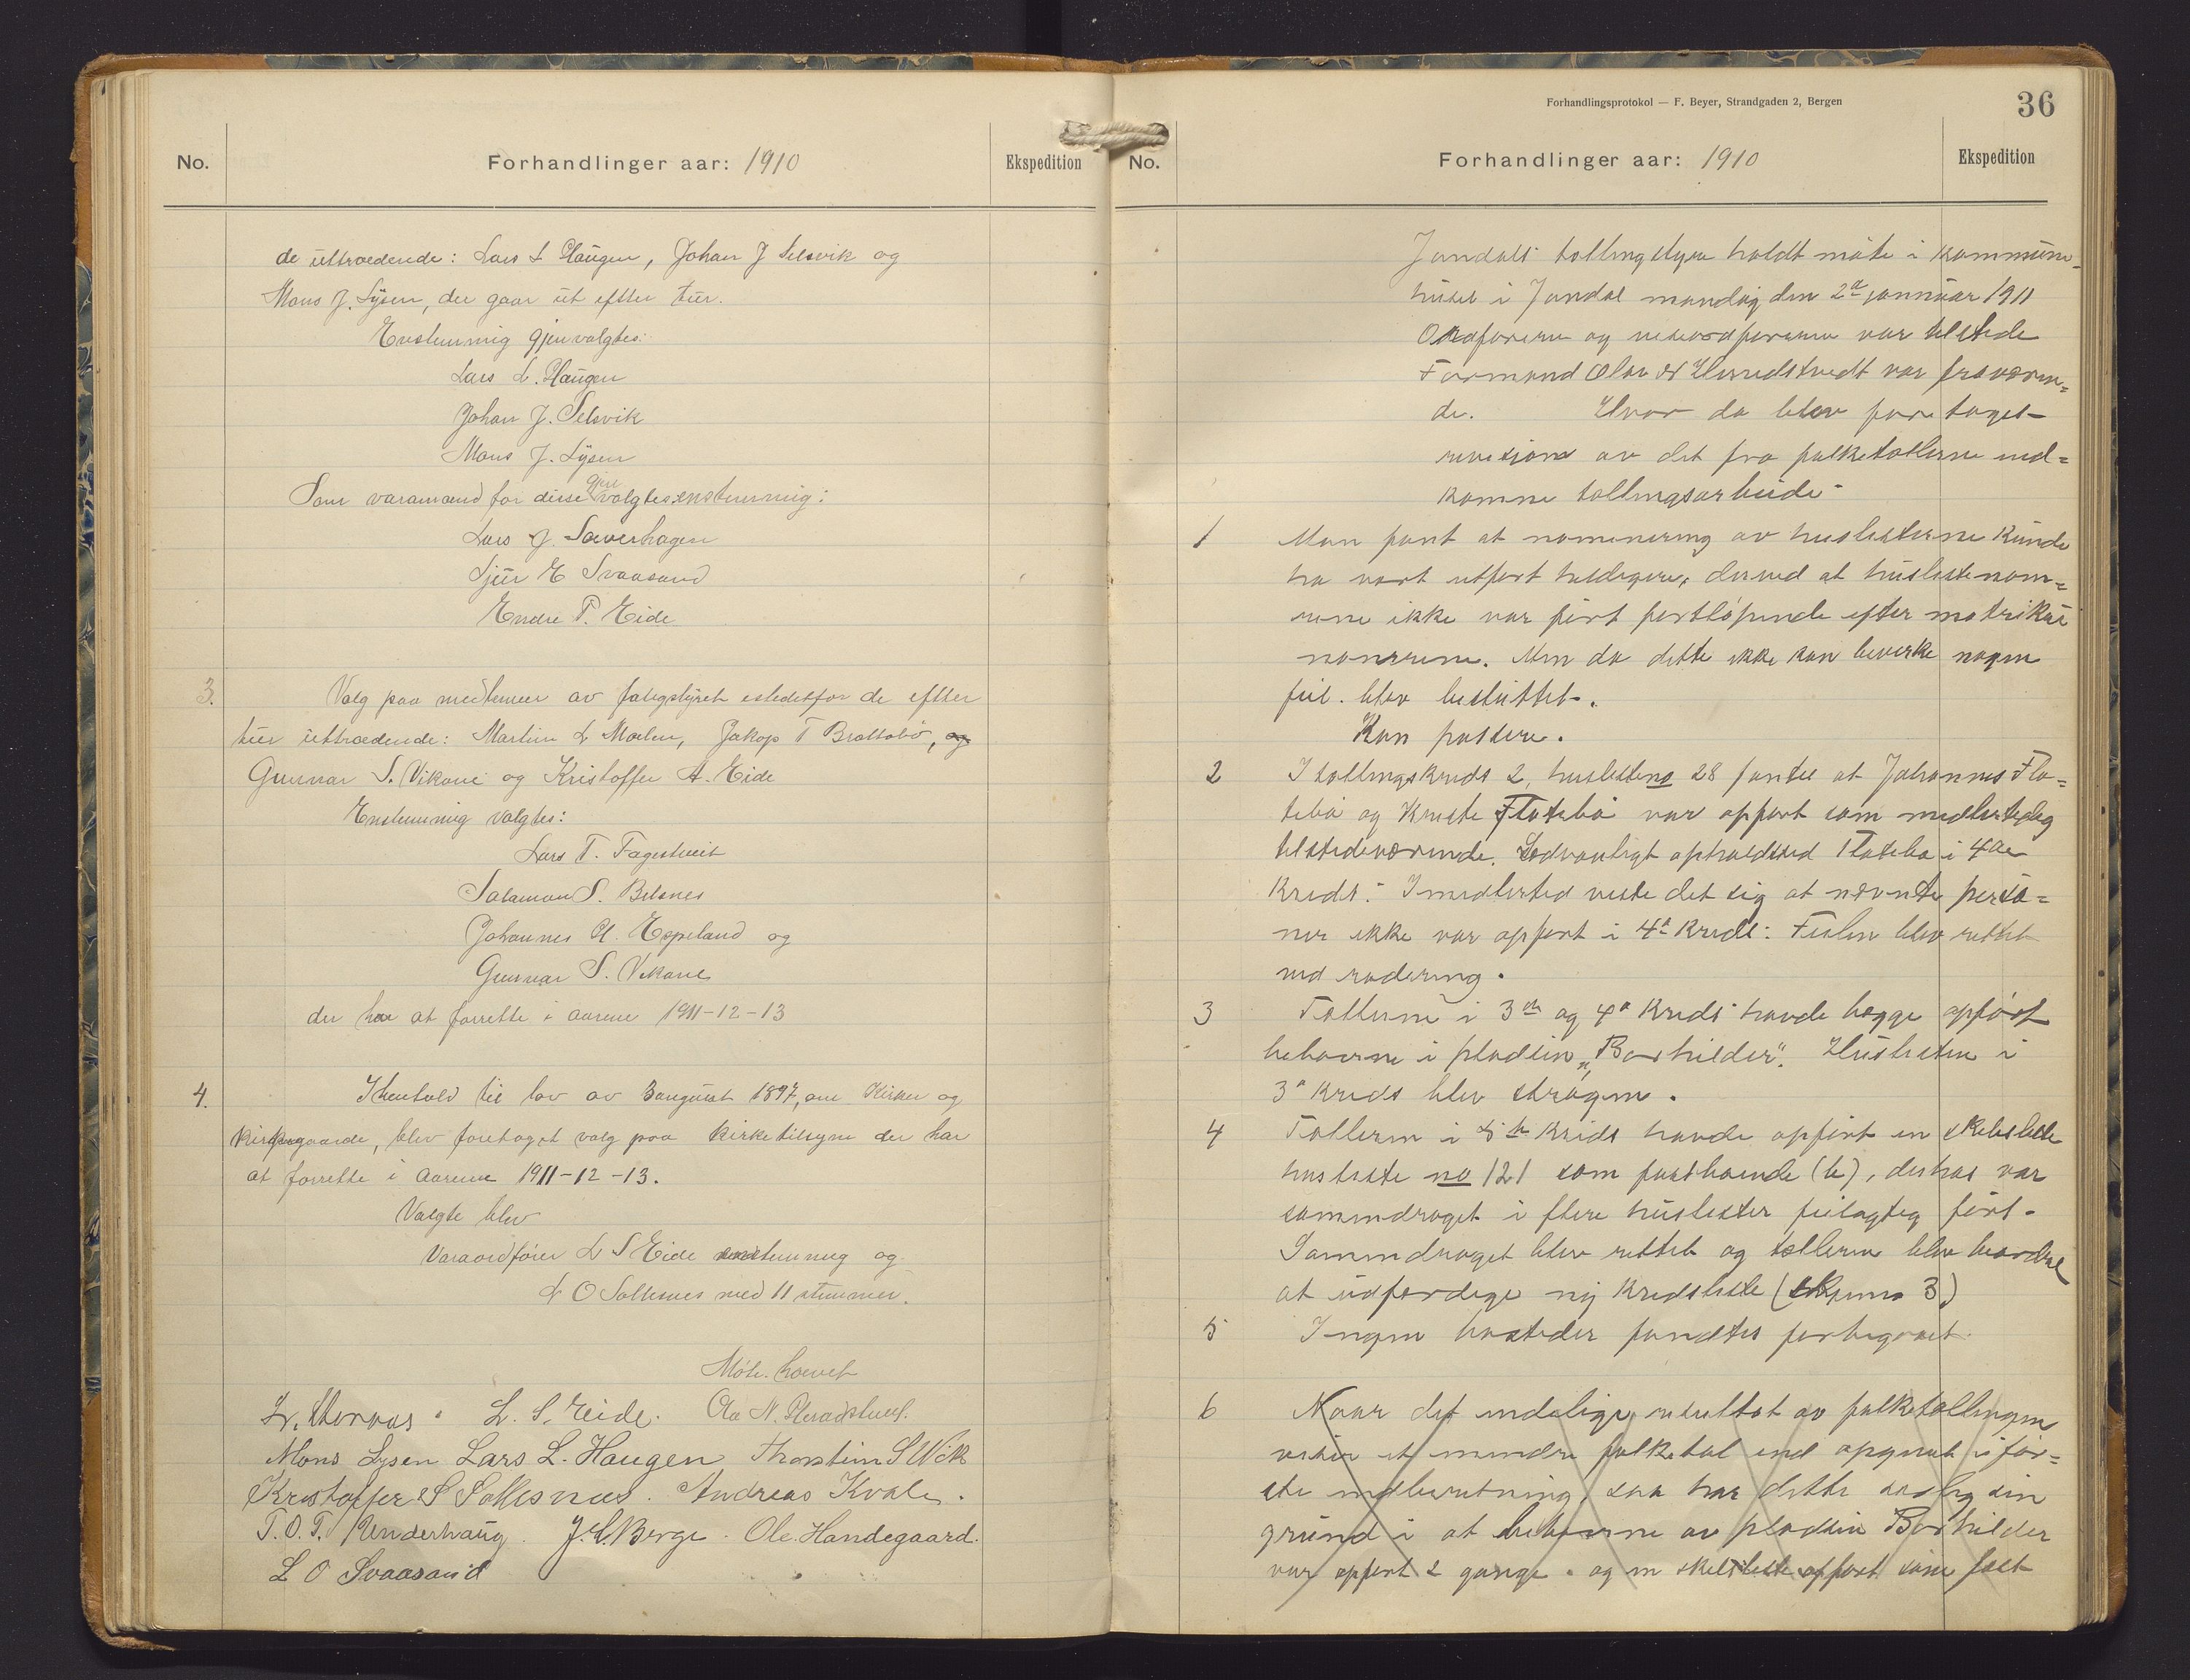 No.
Forhandlinger aar: 1910
Ekspedition
de uttrædende: Lars L Haugen, Johan J Selsvik og
Mons J. Lysen, der gaar ut efter tur.
Enstemmig gjenvalgtes:
Lars L. Haugen
Johan J. Selsvik
Mons J. Lysen
Som varamænd for disse gjenvalgtes enstemmig:
Lars J. Sæverhagen
Sjur E Svaasand
Endre T. Eide
3.
Valg paa medlemer av fatigstyret istedetfor de efter
tur uttrædende: Martin L Mælen, Jakop T Brattabø, og
Gunnar S. Vikane og Kristoffer A. Eide
Enstemmig valgtes:
Lars T. Fagertveit
Salamon S. Belsnes
Johannes A. Espeland og
Gunnar S. Vikane
der har at forrette i aarene 1911-12-13
4.
I henhold til lov av 3 august 1897, om Kirker og
kirkegaarde, blev foretaget valg paa kirketilsyne der har
at forrette i aarene 1911-12-13.
Valgte blev
Varaordfører L S Eide enstemmig og
L O Solhesnes med 11 stemmer.
Møte hævet
L. S. Eide. Ola N. Heradstveit.
Mons Lysen Lars L. Haugen Thorstein S Vik
Kristoffer S Solhesnæs. Andreas Kvale.
T. O. T. Underhaug. J. L. Berge. Ole Handegaard.
L O Svaasand
Forhandlingsprotokol — F. Beyer, Strandgaden 2, Bergen
36
No.
Forhandlinger aar: 1910
Ekspedition
Jondals tællingstyre holdt møte i kommune-
huset i Jondal mandag den 2den januar 1911
Ordføreren og viseordføreren var tilstede
Formand Olav N Herredstvedt var fraværen=
de. Hvor da blev foretaget
revisjon av det fra folketællerne ind=
komne tællingsarbeide
1
Man fant at nomenering av huslisterne kunde
ha vært utført heldigere, derved at huslistenom=
rene ikke var ført fortløpende efter matrikul
nomrene. Men da dette ikke kan bevirke nogen
feil. blev besluttet.
Kan passere.
2
I tællingskreds 2, husliste no 28 fantes at Johannes Fla=
tebø og Kriste Flatebø var opført som midlertidig
tilstedeværende. Sædvanligt opholdsted Flatebø i 4de
kreds. Imidlertid viste det sig at nævnte perso=
ner ikke var opført i 4de kreds: Feilen blev rettet
ved radering.
3
Tællerne i 3de og 4de kreds havde begge opført
beboerne i pladsen „Borhilder". Huslisten i
3de kreds blev strøgen.
4
Tælleren i 5te kreds havde opført en skilsliste
husliste no 121 som fastboende (b), derhos var
sammdraget i flere huslister feilagtig ført.
Sammdraget blev rettet og tælleren blev beordret
at udfærdige ny kredsliste (skjema 3)
5
Ingen bosteder fandtes forbigaaet.
6
Naar det endelige resultat av folketællingen
viser et mindre folketal end opgivet i før=
ste indberetning, saa har dette særlig sin
grund i at beboerne av pladsen Borhilder
var opført 2 gange. og en skilsliste opført som fast